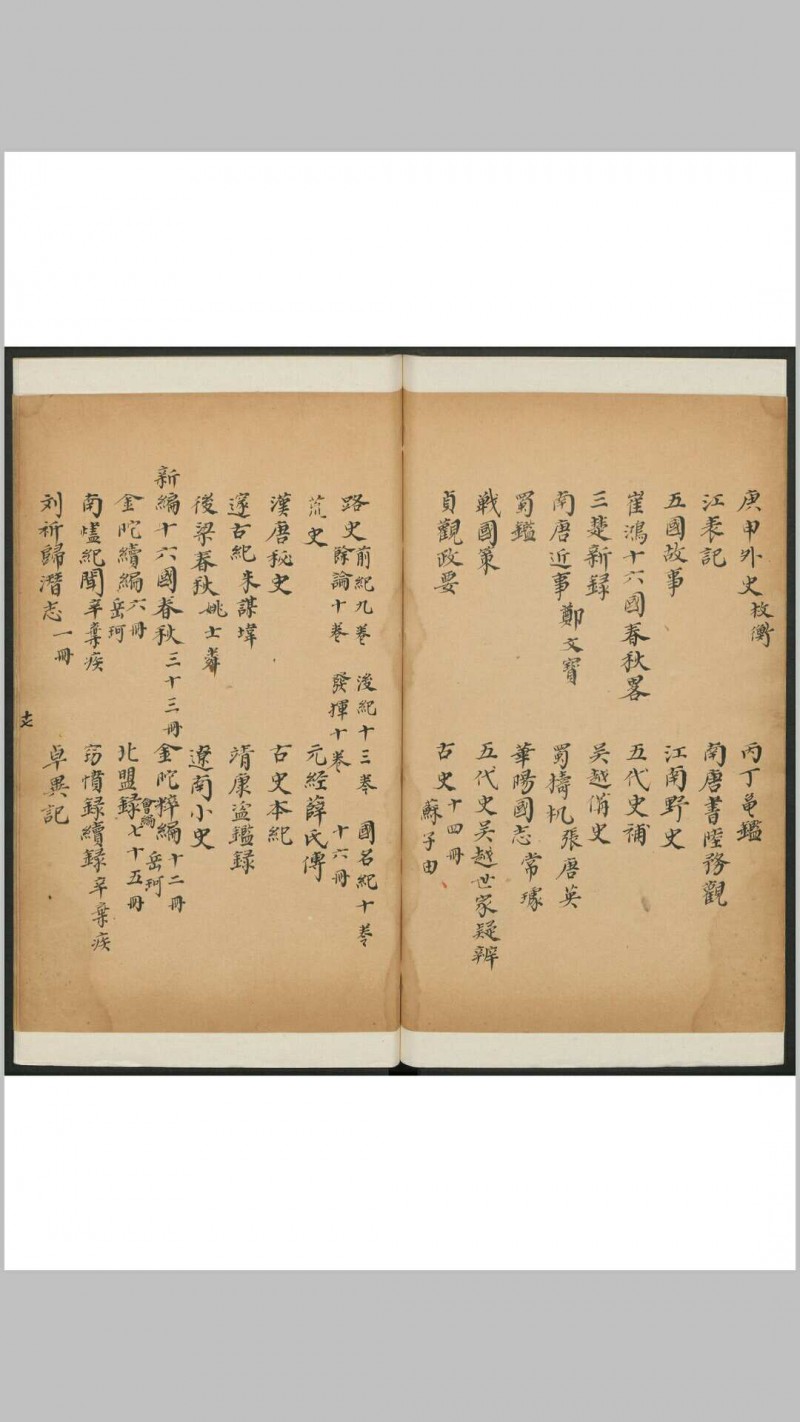 庚申外史 权衡 丙丁龜鑑
江表記 南唐書 陸務觀
五國故事 江南野史
崔鴻十六國春秋畧 五代史補
三楚新録 吴越俻史
南唐近事 鄭文寶 蜀檮杌 張唐英
蜀鑑 華陽國志 常璩
戰國策 五代史吴越世家疑辨
貞觀政要 古史 十四冊 蘇子由
路史 前紀九卷 後紀十三卷 國名紀十卷
餘論十卷 發揮十卷
荒史 元經薛氏傳 十六冊
漢唐秘史 古史本紀
邃古紀 朱謀㙔 靖康盗鑑録
後梁春秋 姚士粦 遼南小史
新編十六國春秋 三十三冊 金陀粹編 十二冊 岳珂
金陀續編 六冊 岳珂 北盟録 會編 七十五冊
南燼紀聞 辛棄疾 竊憤録續録 辛棄疾
刘祈歸潛志 一冊 卓異記